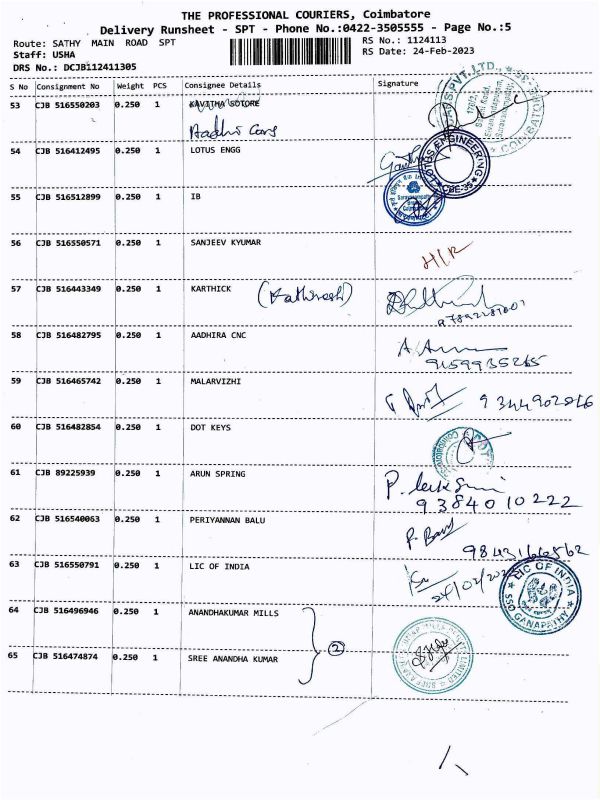 THE PROFESSIONAL COURIERS, Coimbatore
Delivery Runsheet - SPT - Phone No.:0422-3505555 - Page No.:5
Route: SATHY MAIN ROAD SPT RS No.: 1124113
Staff: USHA RS Date: 24-Feb-2023
DRS No.: DCJB112411305
S No Consignment No Weight PCS Consignee Details Signature
53 CJB 516550203 0.250 1 KAVITHA SOTORE
Aadhi Cars
54 CJB 516412495 0.250 1 LOTUS ENGG
LOTUS ENGINEERING CBE-35
55 CJB 516512899 0.250 1 IB
56 CJB 516550571 0.250 1 SANJEEV KYUMAR
H/R
57 CJB 516443349 0.250 1 KARTHICK
58 CJB 516482795 0.250 1 AADHIRA CNC
9159935265
59 CJB 516465742 0.250 1 MALARVIZHI
60 CJB 516482854 0.250 1 DOT KEYS
DOT
61 CJB 89225939 0.250 1 ARUN SPRING
9384010222
62 CJB 516540063 0.250 1 PERIYANNAN BALU
63 CJB 516550791 0.250 1 LIC OF INDIA
LIC OF INDIA GANAPATHY
64 CJB 516496946 0.250 1 ANANDHAKUMAR MILLS
2
65 CJB 516474874 0.250 1 SREE ANANDHA KUMAR